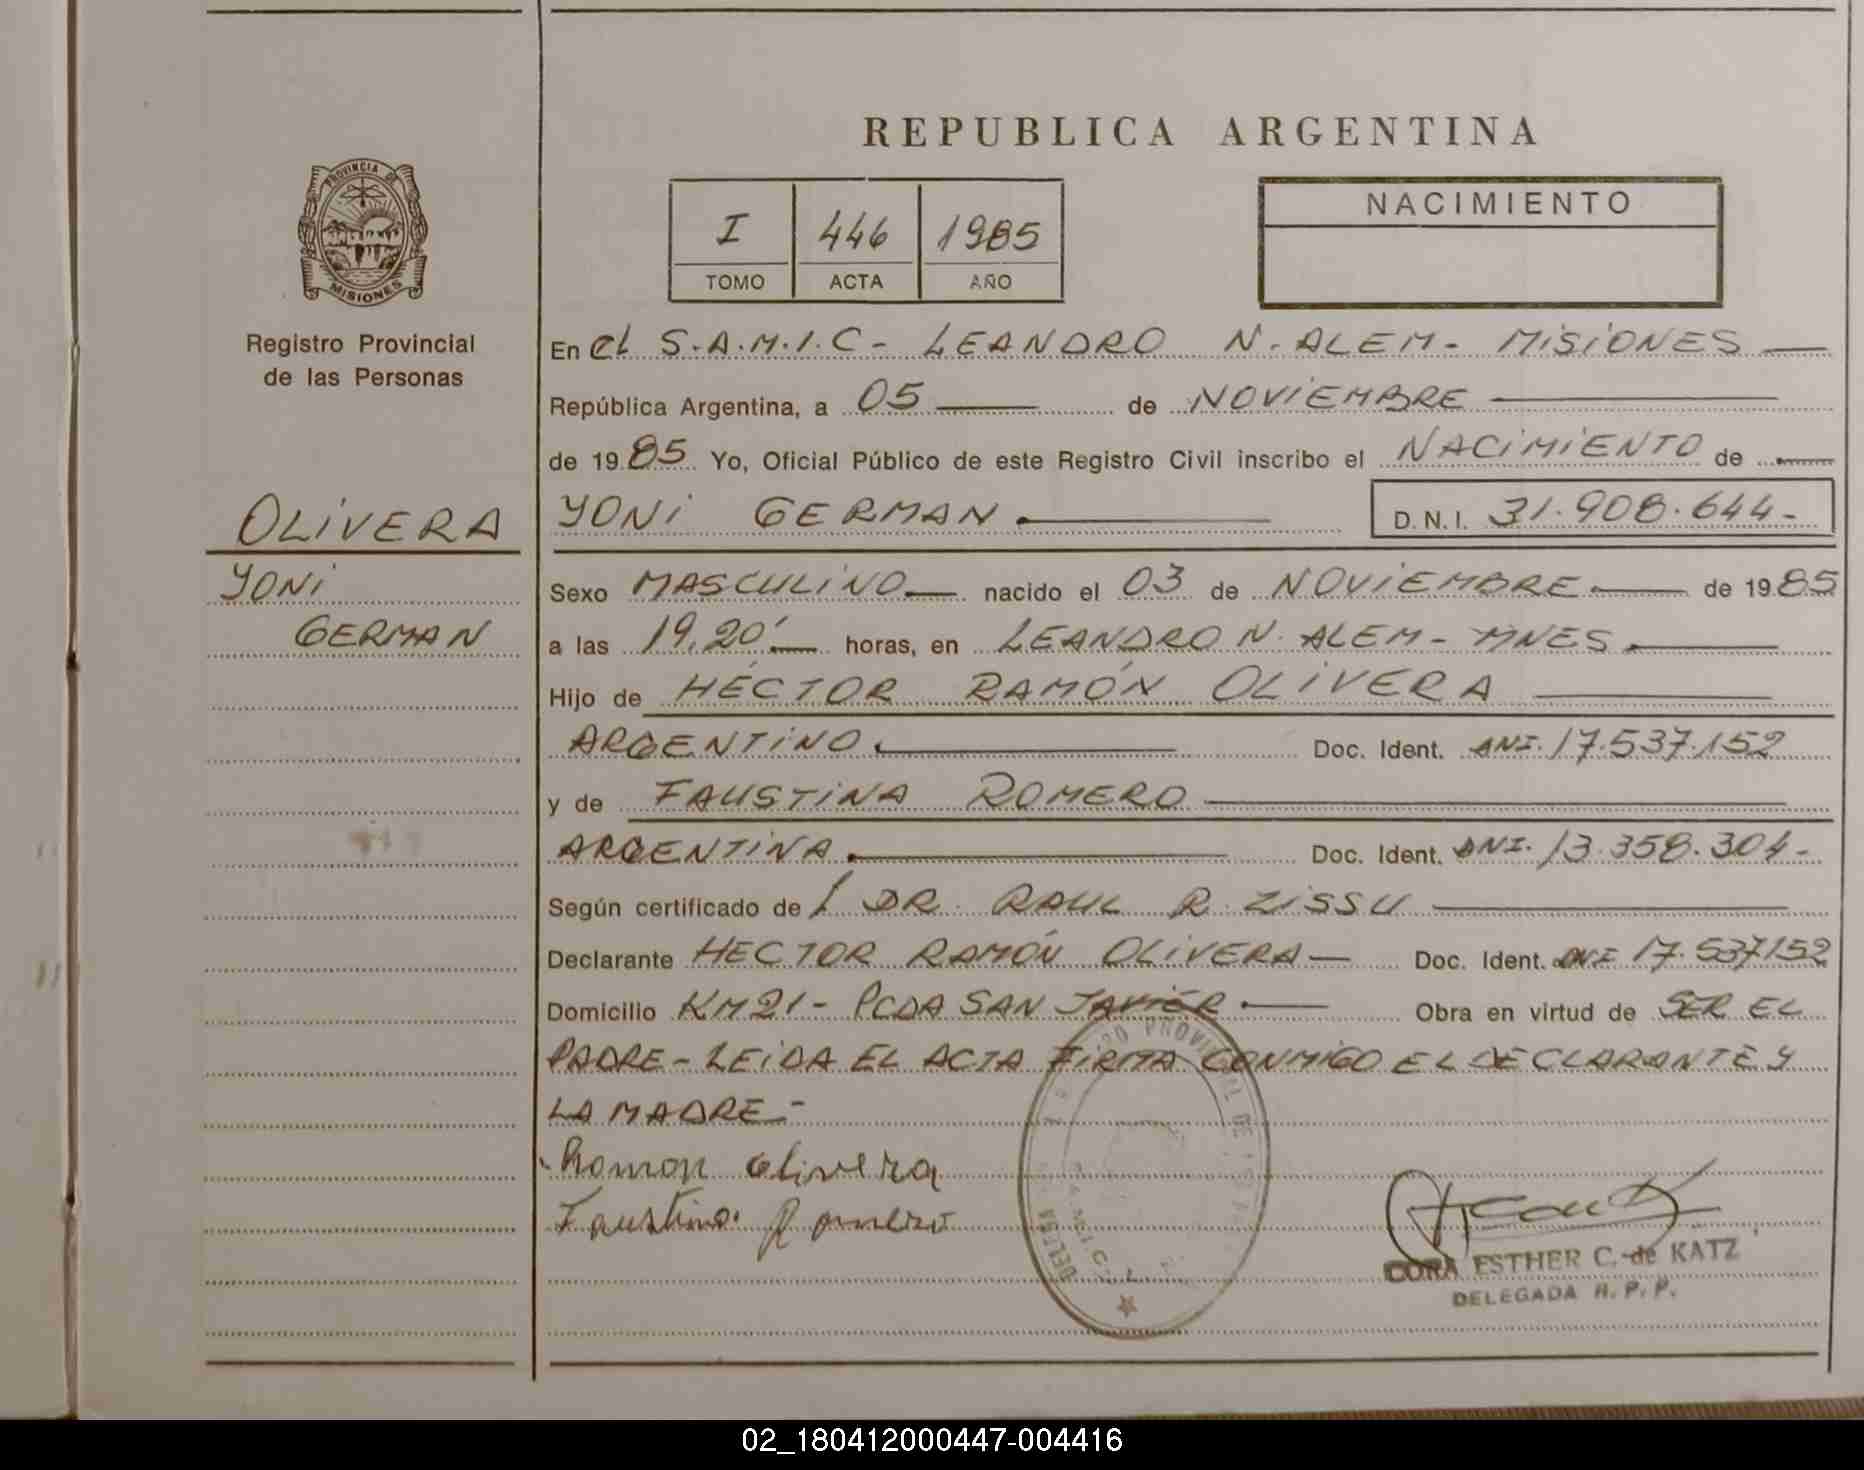 REPUBLICA ARGENTINA
PROVINCIA DE
MISIONES
Registro Provincial
de las Personas
I 446 1985
TOMO ACTA AÑO
NACIMIENTO
En el S.A.M.I.C- LEANDRO N. ALEM- MISIONES
República Argentina, a 05 de NOVIEMBRE
de 1985 Yo, Oficial Público de este Registro Civil inscribo el NACIMIENTO de
YONI GERMAN D.N.I. 31.908.644-
OLIVERA
YONI
GERMAN
Sexo MASCULINO nacido el 03 de NOVIEMBRE de 1985
a las 19.20' horas, en LEANDRO N. ALEM- MNES
Hijo de HÉCTOR RAMÓN OLIVERA
ARGENTINO Doc. Ident. DNI. 17.537.152
y de FAUSTINA ROMERO
ARGENTINA Doc. Ident. DNI. 13.358.304-
Según certificado de DR. RAUL R. ZISSU
Declarante HECTOR RAMÓN OLIVERA Doc. Ident. DNI 17.537152
Domicilio KM21- PCDA SAN JAVIER Obra en virtud de SER EL
PADRE- LEIDA EL ACTA FIRMA CONMIGO EL DECLARANTE Y
LA MADRE-
Ramon Olivera
Faustina Romero
CORA ESTHER C. de KATZ
DELEGADA R.P.P.
02_180412000447-004416